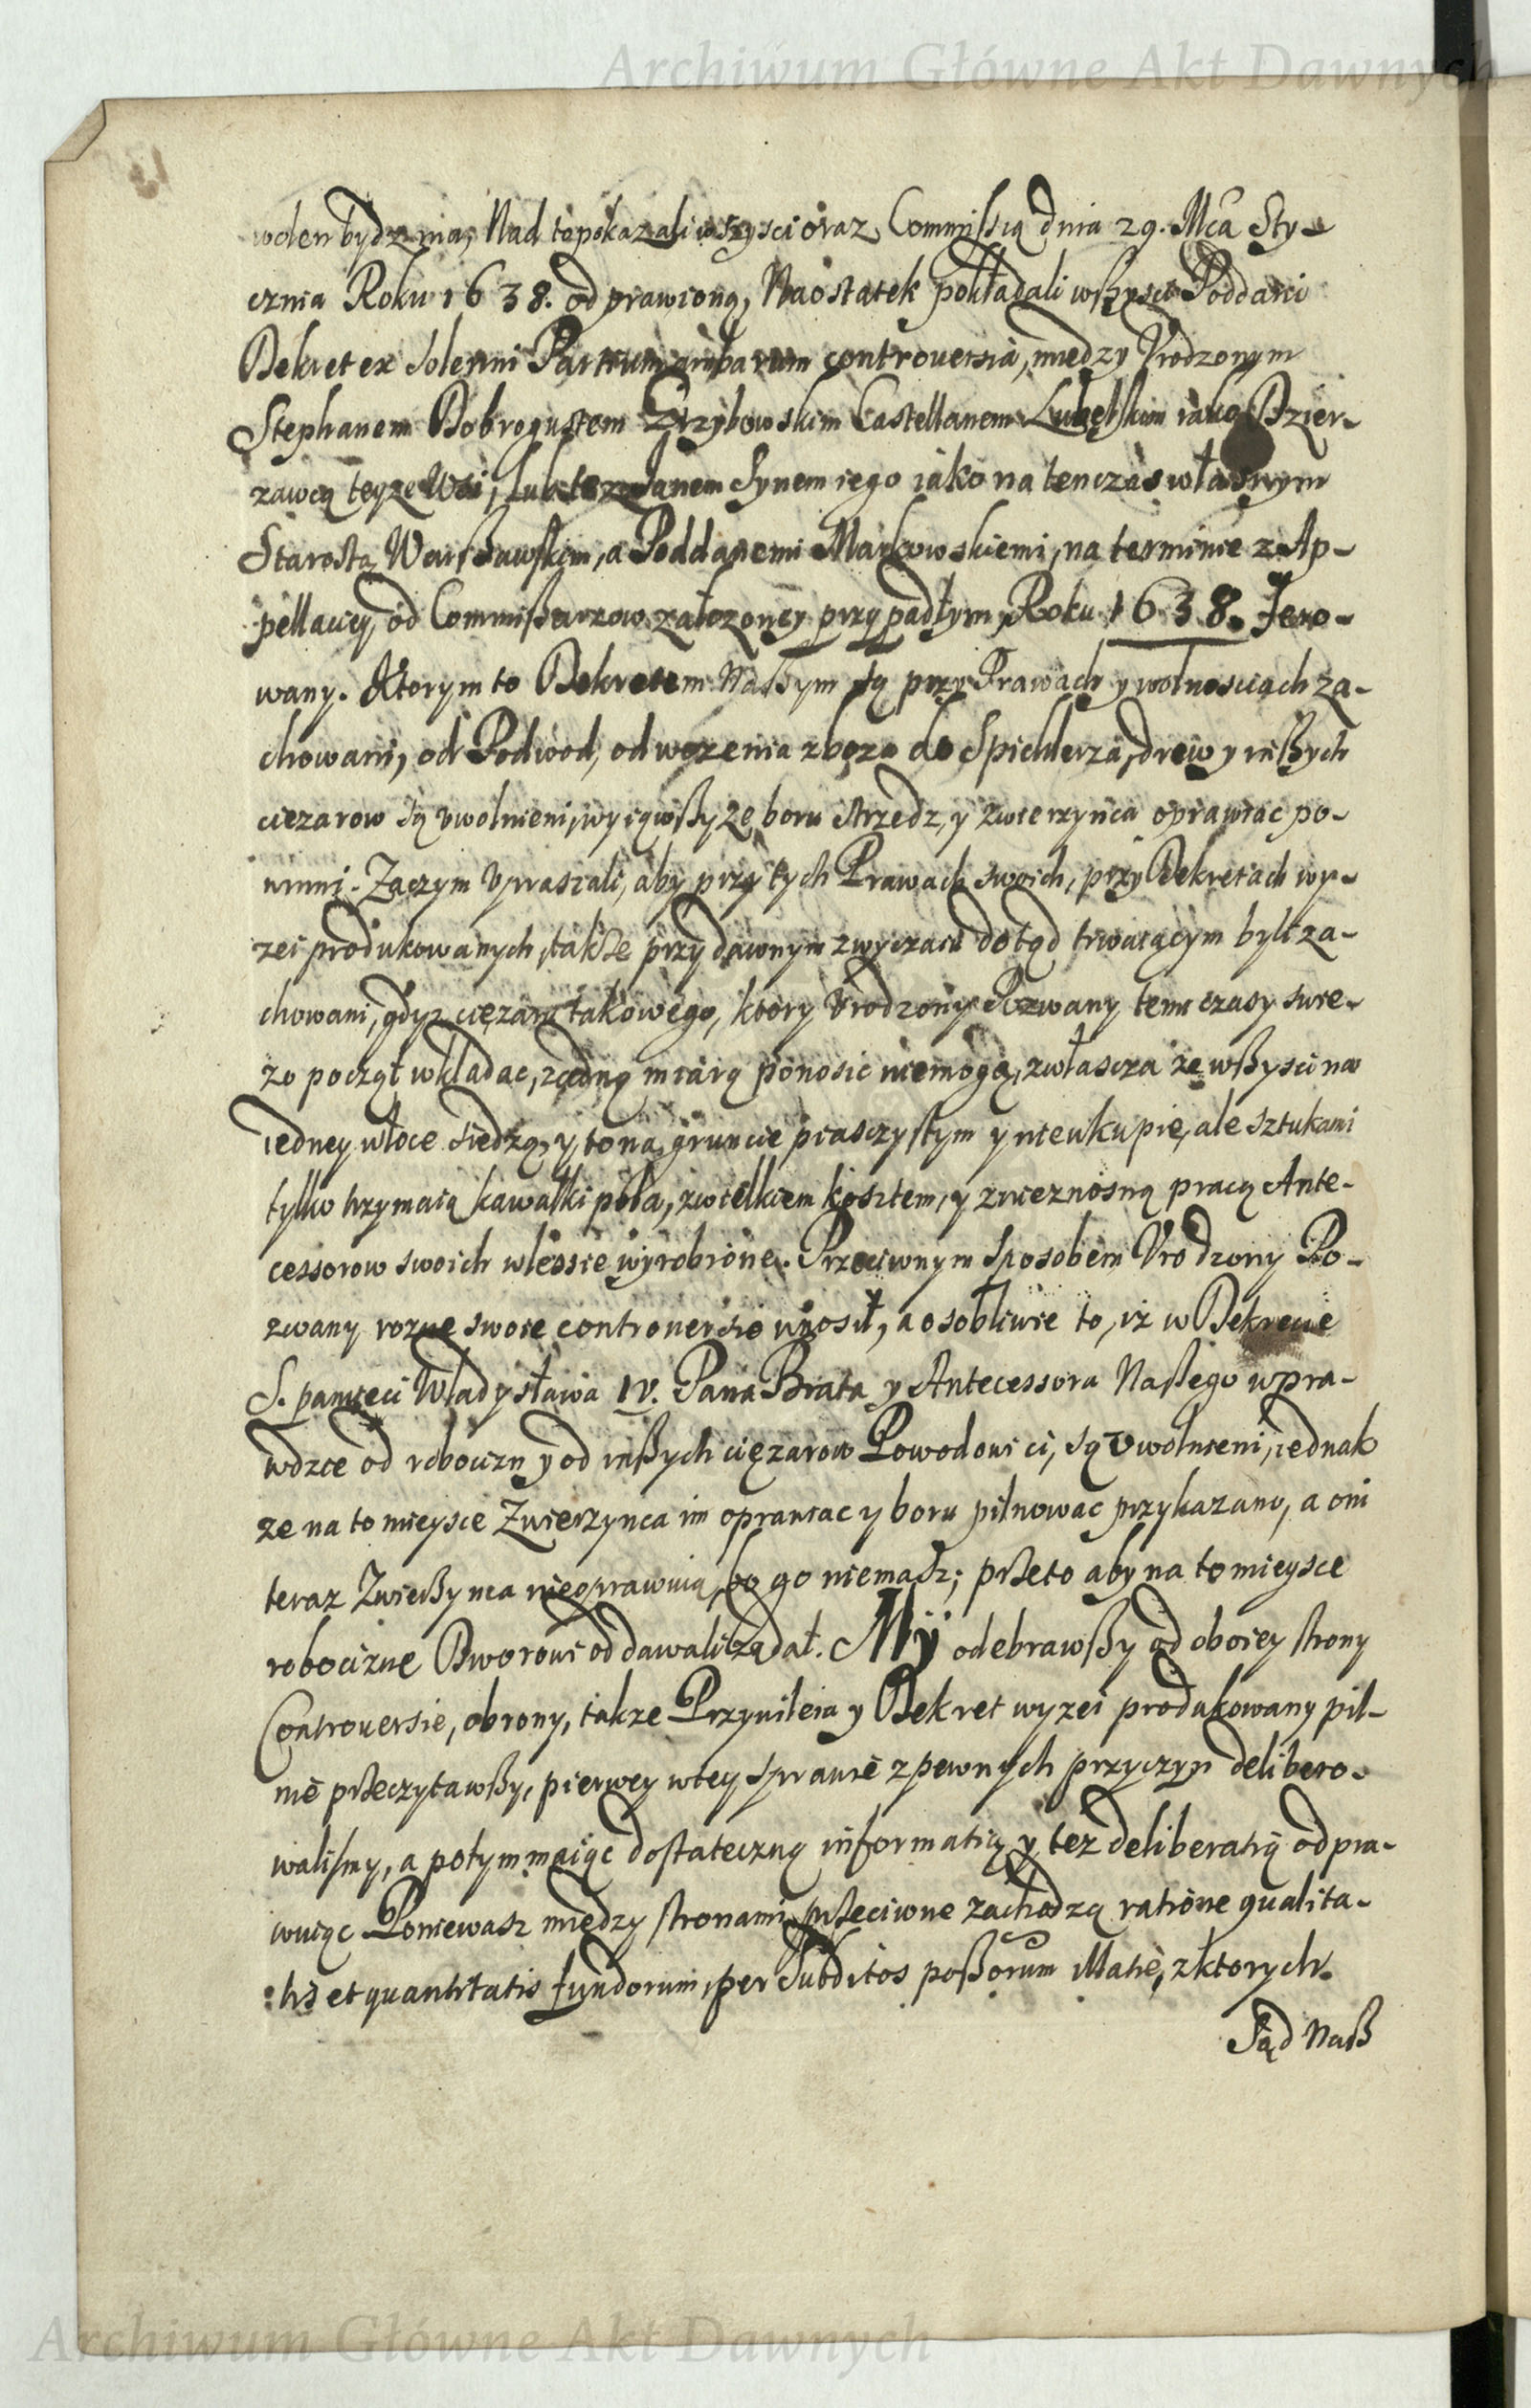 Archiwum Główne Akt Dawnych
wolen bydz ma, Nad to pokazali wszysci oraz Commissią dnia 29. Mca Sty-
cznia Roku 1638. odprawioną, Naostatek pokładali wßysci Poddani
Dekret ex solenni Partium ambarum controuersia, między Vrodzonym
Stephanem Dobrogustem Grzybowskim Castellanem Lubelskim iako Dzier-
zawcą teyze Wsi, Janem Synem iego iako na tenczas własnym
Starostą Warßawskim, a Poddanemi Markowskiemi, na terminie z Ap-
pellaciey od Commißarzow załozoney przypadłym, Roku 1638. Fero-
wany. Ktorym to Dekretem Naßym są przy Prawach y wolnosciach za-
chowani, od Podwod, od wozenia zboza do Spichlerza, drew y inßych
ciezarow są vwolnieni, wyiąwßy ze boru strzedz, y zwierzynca oprawiac po-
winni. Zaczym vpraszali, aby przy tych Prawach swoich, przy Dekretach wy-
zei produkowanych, takze przy dawnym zwyczaiu dotąd trwaiącym byli za-
chowani, gdyz cięzaru takowego, ktory Vrodzony Pozwany temi czasy swie-
zo począł wkładac, zadną miarą ponosic niemogą, zwłascza ze wßysci na
iedney włoce siedzą, y to na gruncie piasczystym y nie w kupie, ale sztukami
tylko trzymaią kawałki pola, z wielkiem kosztem, y znieznosną pracą Ante-
cessorow swoich w lessie wyrobione. Przeciwnym sposobem Vrodzony Po-
zwany rozne swoie controuersie wnosił, a osobliwie to, iz w Dekrecie
S. pamięci Władysława IV. Pana Brata y Antecessora Naßego wpra-
wdzce od robocizn y od inßych cięzarow Powodowi ci, są vwolnieni, iednak
ze na to mieysce Zwierzynca im oprawiac y boru pilnowac przykazano, a oni
teraz Zwierßynca nieoprawuią, bo go niemasz; przeto aby na to mieysce
robocizne Dworowi oddawali ządał. My odebrawßy od oboiey strony
Controuersie, obrony, takze Przywileia y Dekret wyzei produkowany pil-
nie przeczytawßy, pierwey w tey sprawie z pewnych przyczyn delibero-
walismy, a potym maiąc dostateczną informatią y tez deliberatią odpra-
wuiąc Poniewasz między stronami przeciwne zachodzą ratione qualita-
tis et quantitatis fundorum, per Subditos poßorum Matie, z ktorych
Sąd Naß
Archiwum Główne Akt Dawnych